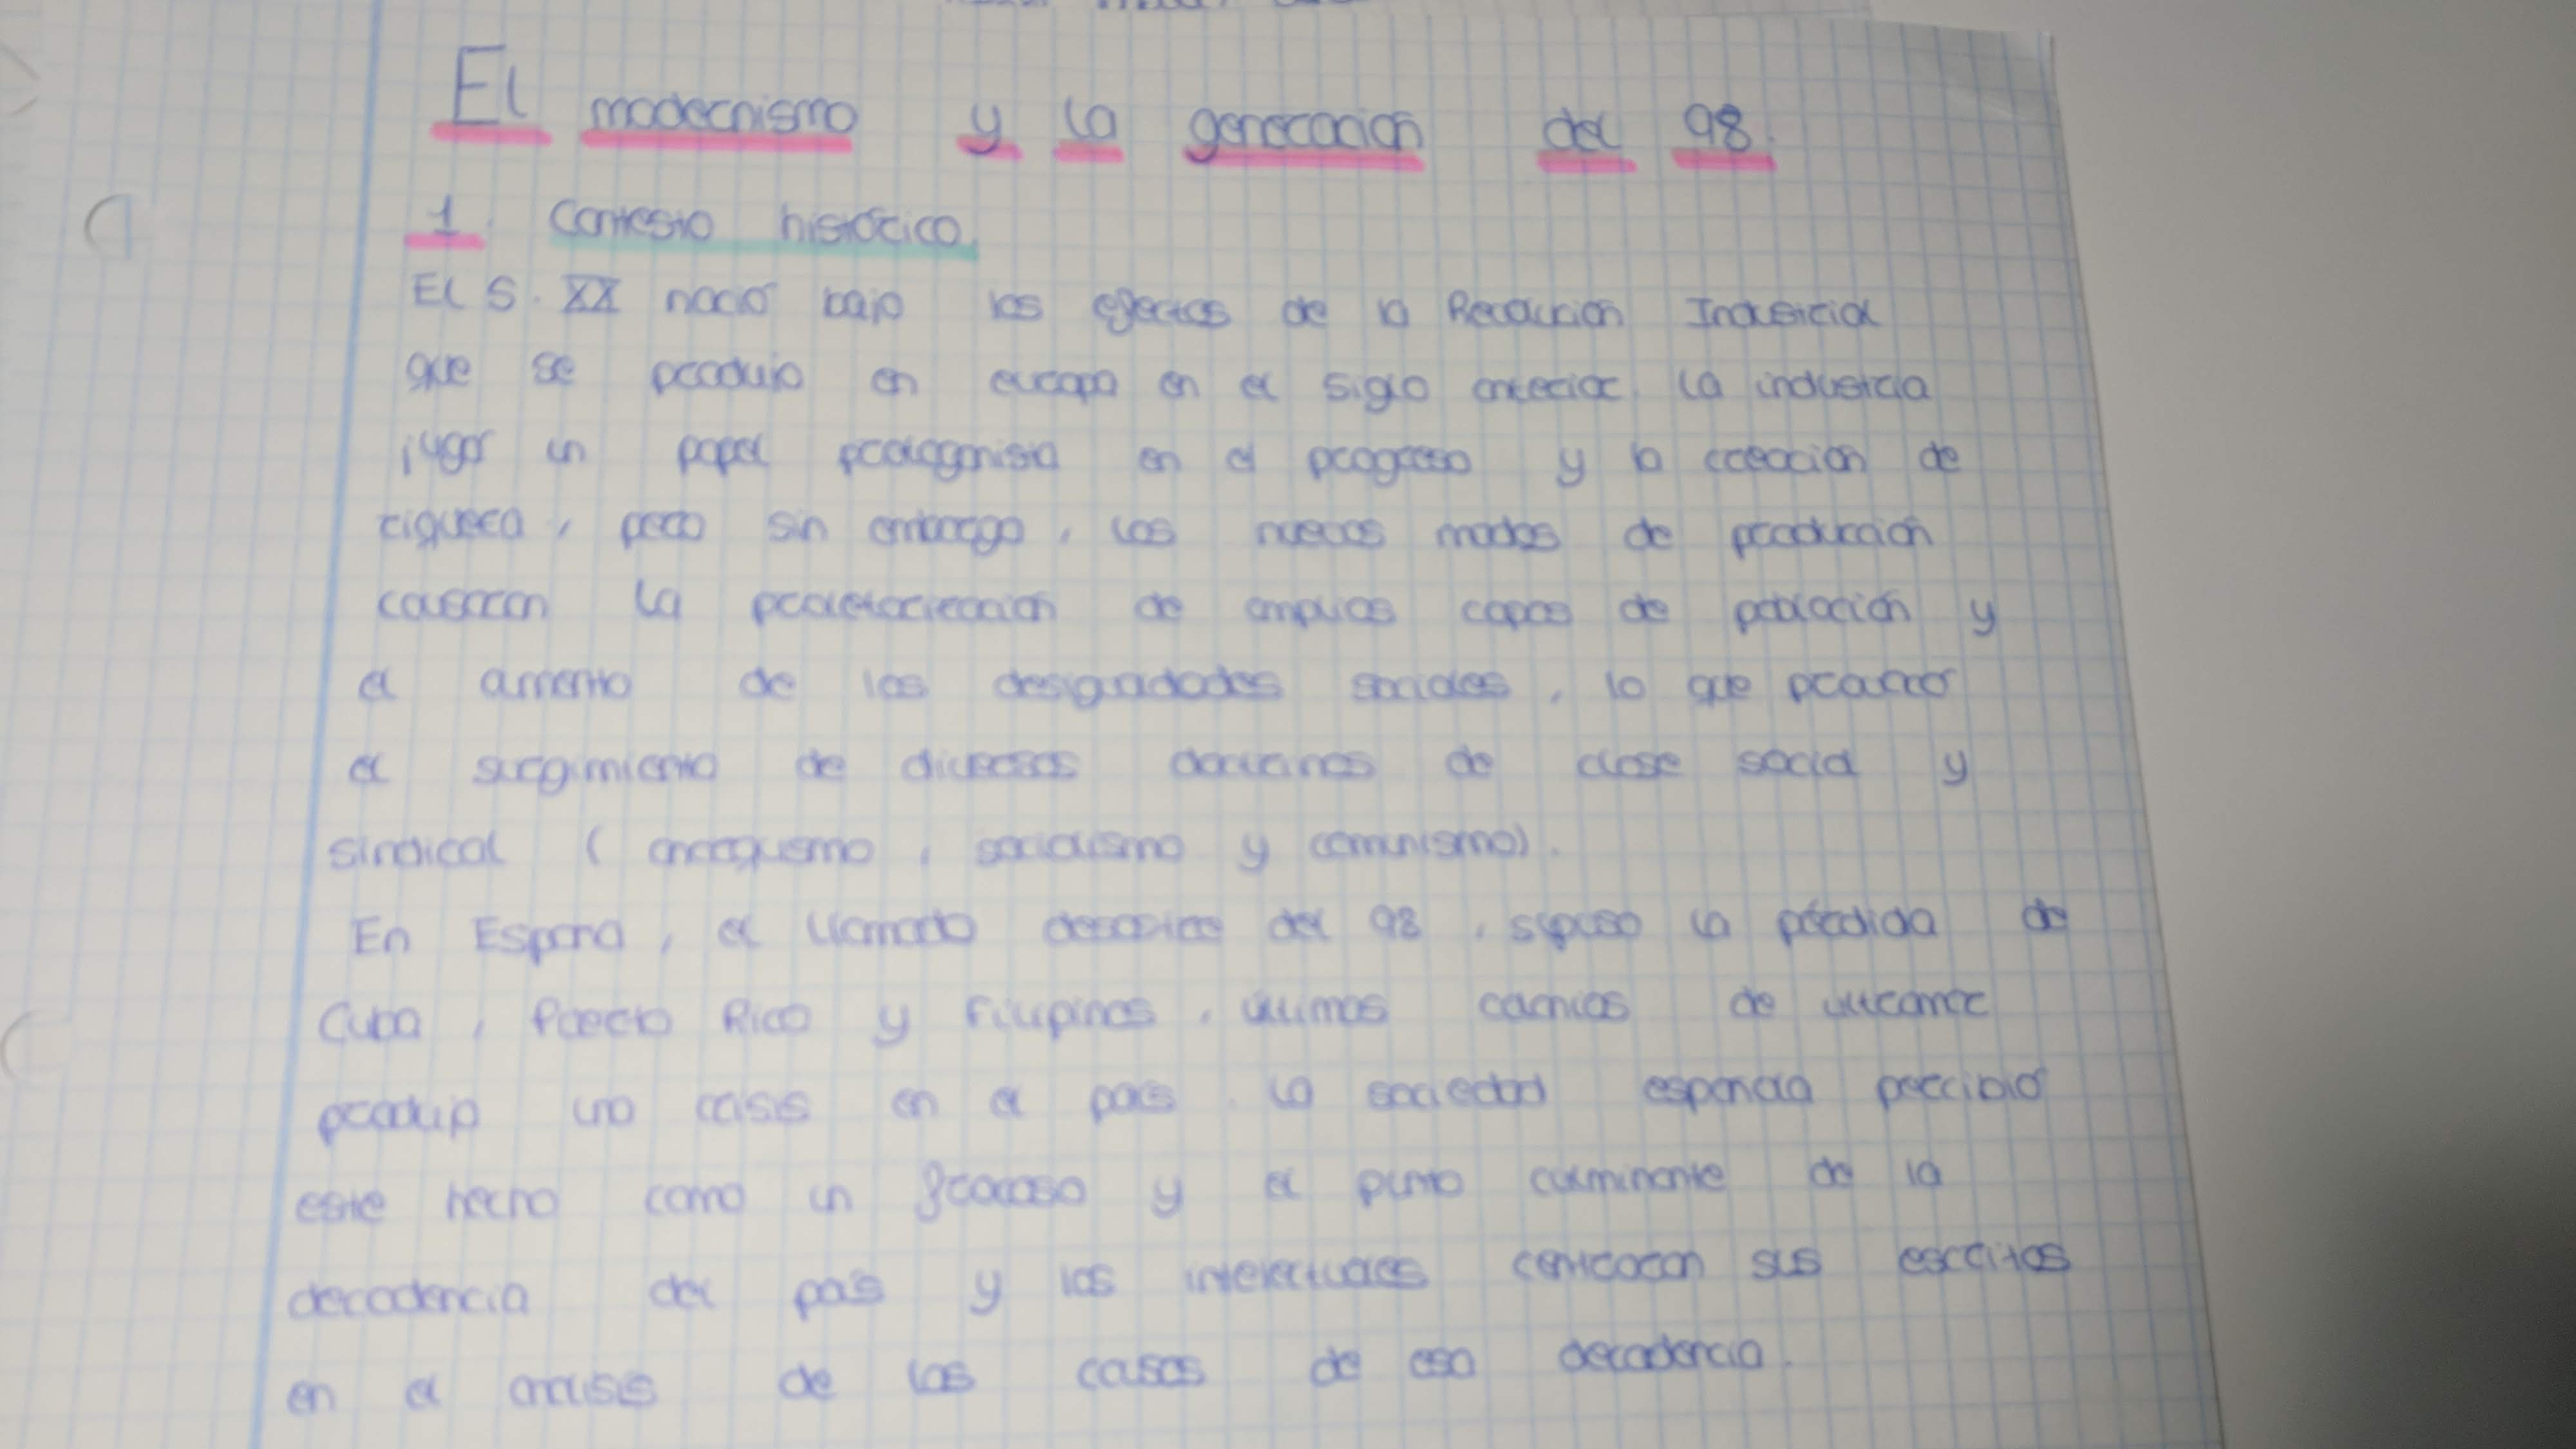 El modernismo y la generación del 98.
1. Contesto histórico.
El S. XX nació bajo los efectos de la Revolución Industrial
que se produjo en europa en el siglo anterior. La industria
jugó un papel protagonista en el progreso y la creación de
riqueza, pero sin embargo, los nuevos modos de producción
causaron la proletarización de amplias capas de población y
el aumento de las desigualdades sociales, lo que provocó
el surgimiento de diversas doctrinas de clase social y
sindical (anarquismo, socialismo y comunismo).
En España, el llamado desastre del 98, supuso la pérdida de
Cuba, Puerto Rico y Filipinas, últimas colonias de ultramar
produjo una crisis en el país. La sociedad española percibió
este hecho como un fracaso y el punto culminante de la
decadencia del país y los intelectuales centraron sus escritos
en el análisis de las causas de esa decadencia.